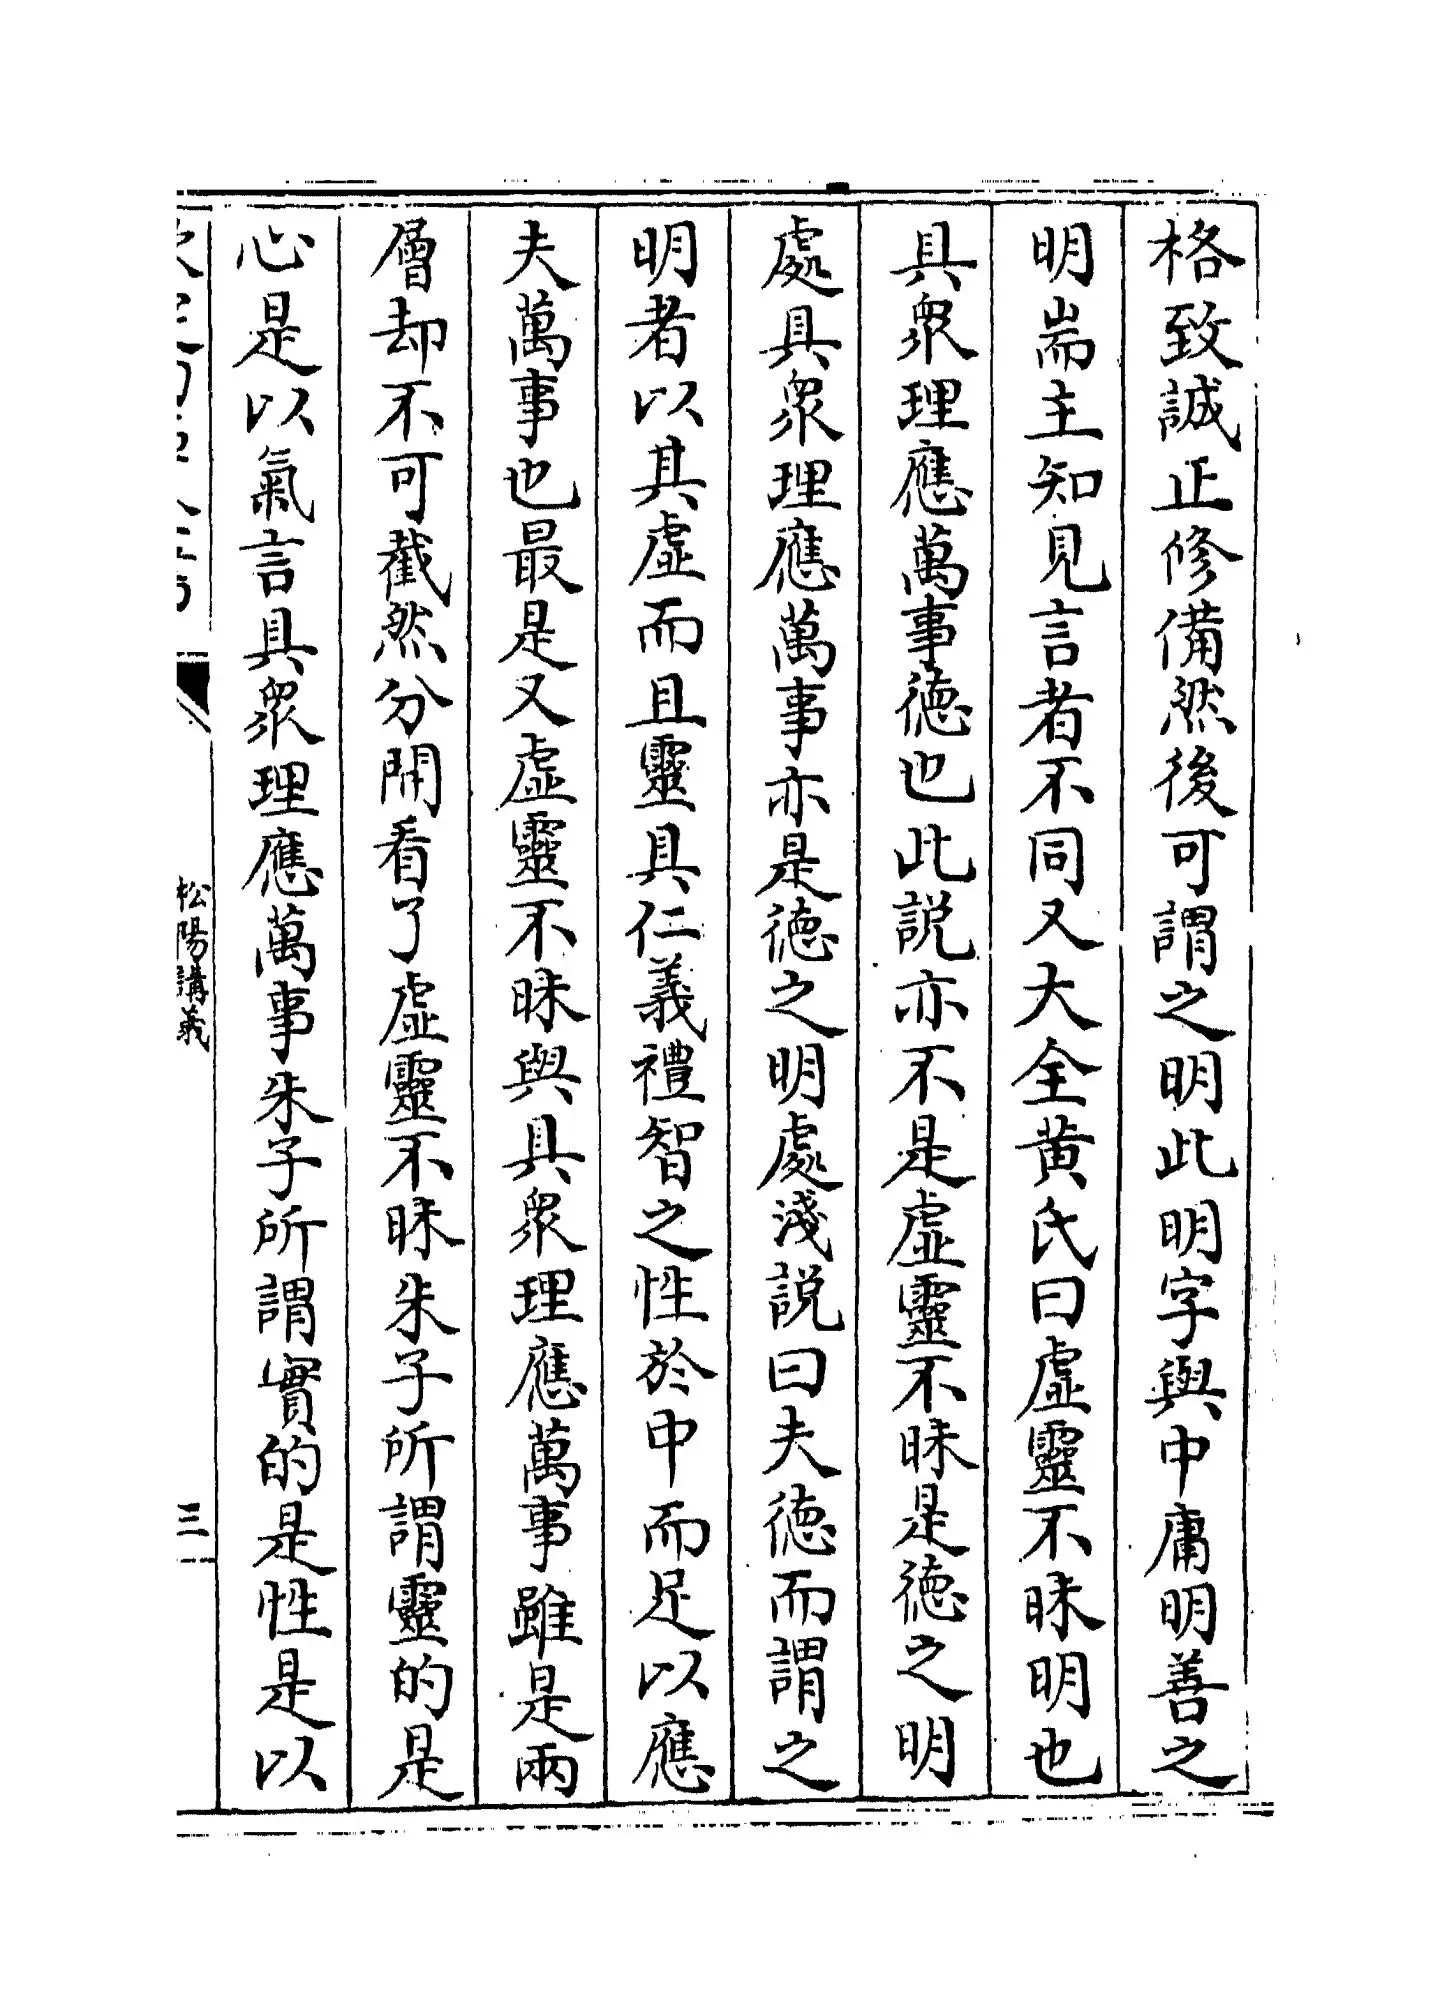 格致誠正修備然後可謂之明此明字與中庸明善之
明耑主知見言者不同又大全黄氏曰虚靈不昧明也
具衆理應萬事德也此説亦不是虚靈不昧是德之明
處具衆理應萬事亦是德之明處淺説曰夫德而謂之
明者以其虚而且靈具仁義禮智之性於中而足以應
夫萬事也最是又虚靈不昧與具衆理應萬事雖是兩
層却不可截然分開看了虚靈不昧朱子所謂靈的是
心是以氣言具衆理應萬事朱子所謂實的是性是以
松陽講義
三